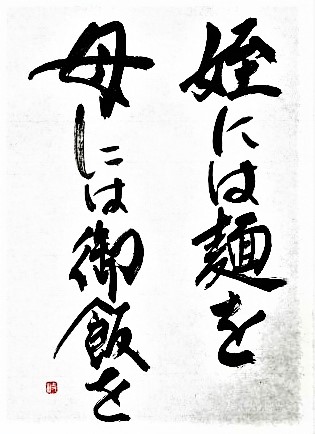 姪には麺を
母には御飯を